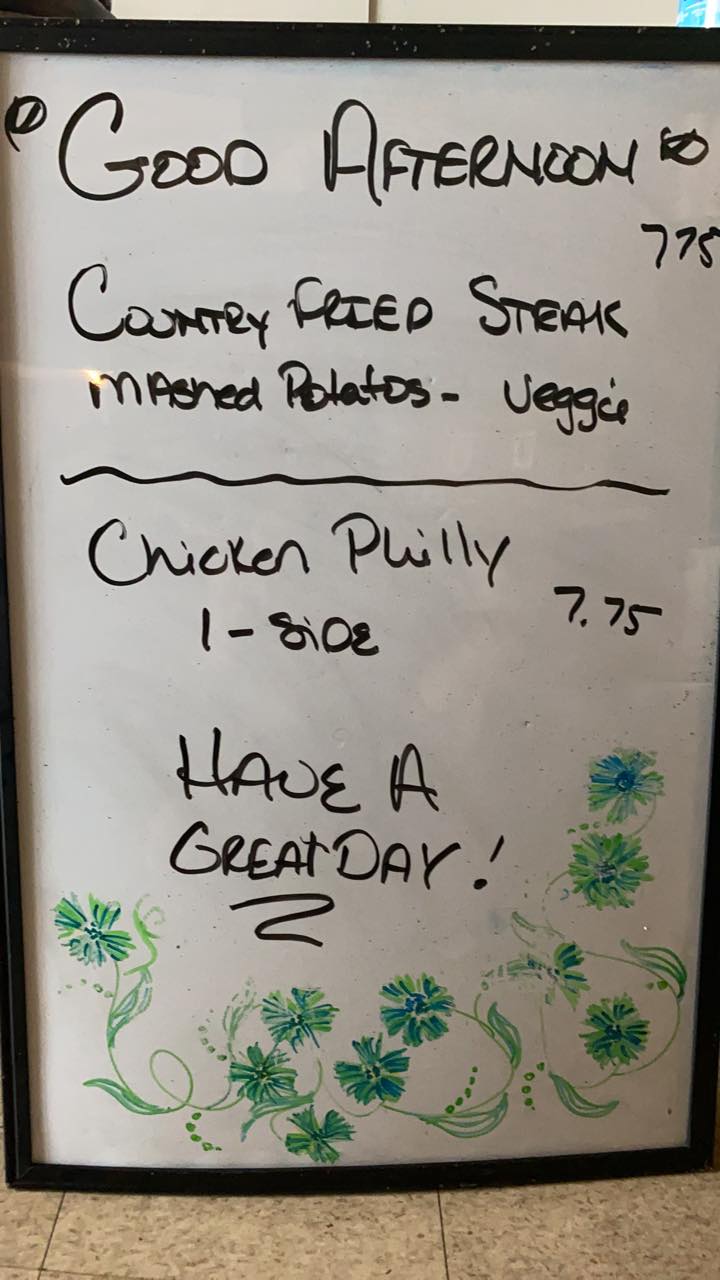 GOOD AFTERNOON
775
COUNTRY FRIED STEAK
MASHED POTATOS - Veggie
Chicken Philly
1 - SIDE 7.75
HAVE A
GREAT DAY!